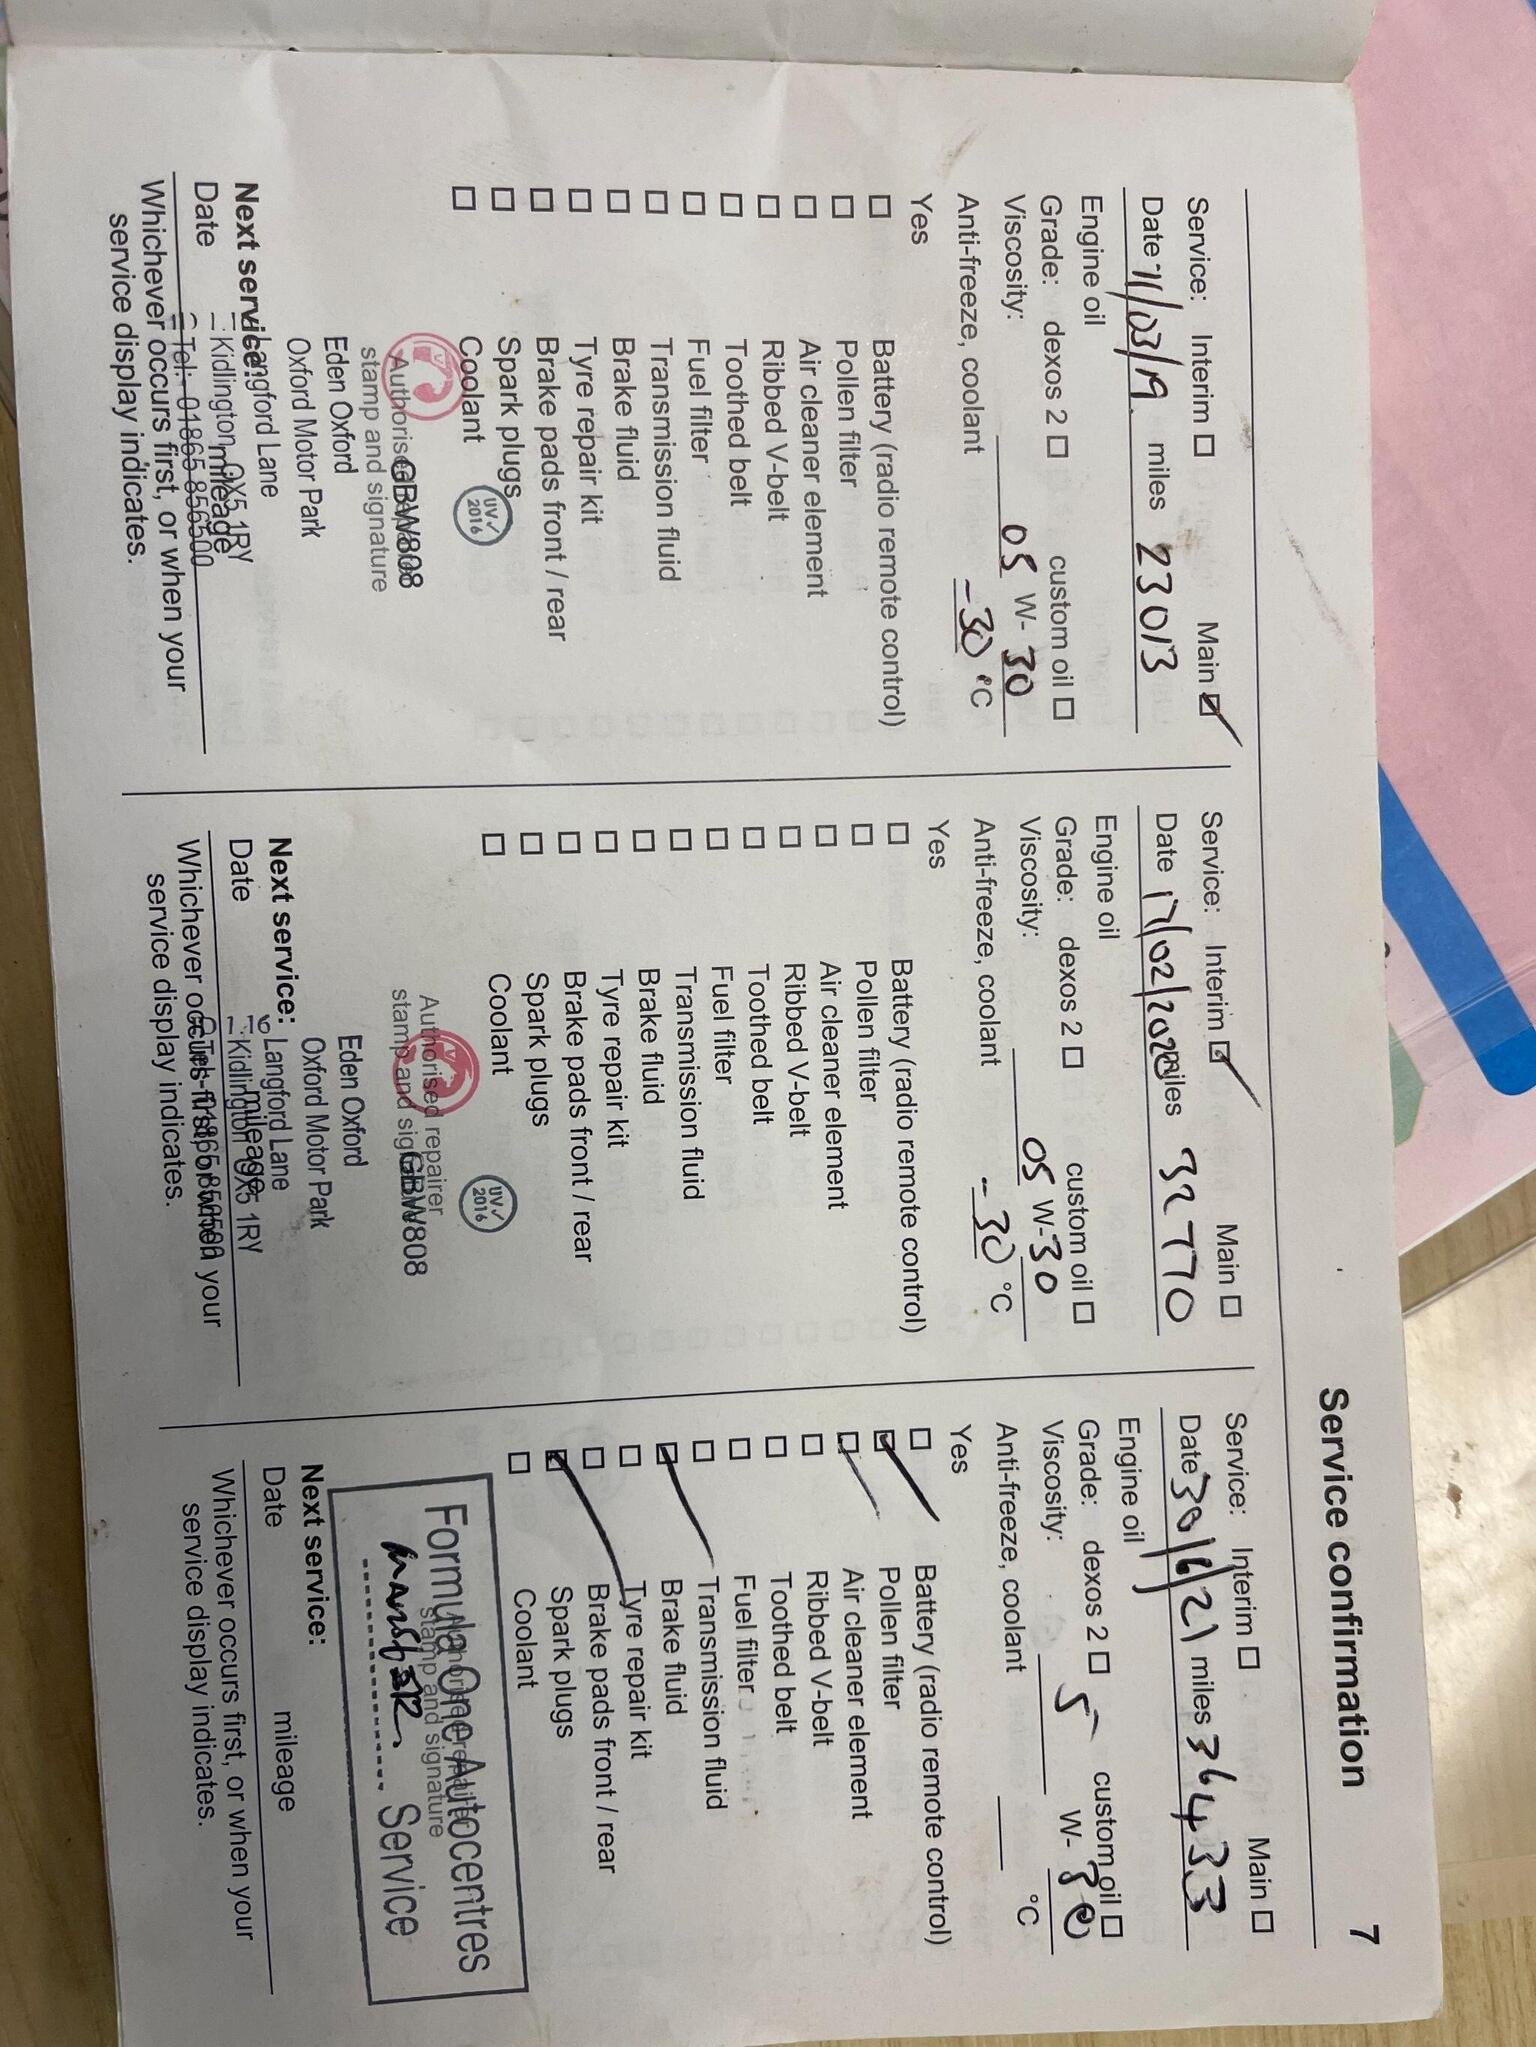 Service confirmation
7
Service: Interim ☐ Main ☑
Date 11/03/19 miles 23013
Engine oil
Grade: dexos 2 ☐ custom oil ☐
Viscosity: 05 W- 30
Anti-freeze, coolant -30 °C
Yes
☐ Battery (radio remote control)
☐ Pollen filter
☐ Air cleaner element
☐ Ribbed V-belt
☐ Toothed belt
☐ Fuel filter
☐ Transmission fluid
☐ Brake fluid
☐ Tyre repair kit
☐ Brake pads front / rear
☐ Spark plugs
☐ Coolant
UV✓
2016
GBW808
stamp and signature
Eden Oxford
Oxford Motor Park
Langford Lane
Kidlington OX5 1RY
Tel: 01865 856500
Next service:
Date mileage
Whichever occurs first, or when your
service display indicates.
Service: Interim ☑ Main ☐
Date 17/02/2020 miles 32770
Engine oil
Grade: dexos 2 ☐ custom oil ☐
Viscosity: 05 W-30
Anti-freeze, coolant -30 °C
Yes
☐ Battery (radio remote control)
☐ Pollen filter
☐ Air cleaner element
☐ Ribbed V-belt
☐ Toothed belt
☐ Fuel filter
☐ Transmission fluid
☐ Brake fluid
☐ Tyre repair kit
☐ Brake pads front / rear
☐ Spark plugs
☐ Coolant
UV✓
2016
Authorised repairer
stamp and
GBW808
Eden Oxford
Oxford Motor Park
Langford Lane
Kidlington OX5 1RY
Next service:
Date mileage
Whichever occurs first, or when your
service display indicates.
Service: Interim ☐ Main ☐
Date 30/6/21 miles 36433
Engine oil
Grade: dexos 2 ☐ custom oil ☐
Viscosity: 5 W- 30
Anti-freeze, coolant °C
Yes
☐ Battery (radio remote control)
☑ Pollen filter
☑ Air cleaner element
☐ Ribbed V-belt
☐ Toothed belt
☐ Fuel filter
☐ Transmission fluid
☑ Brake fluid
☐ Tyre repair kit
☐ Brake pads front / rear
☑ Spark plugs
☐ Coolant
Formula One Autocentres
stamp and signature
Service
Next service:
Date mileage
Whichever occurs first, or when your
service display indicates.